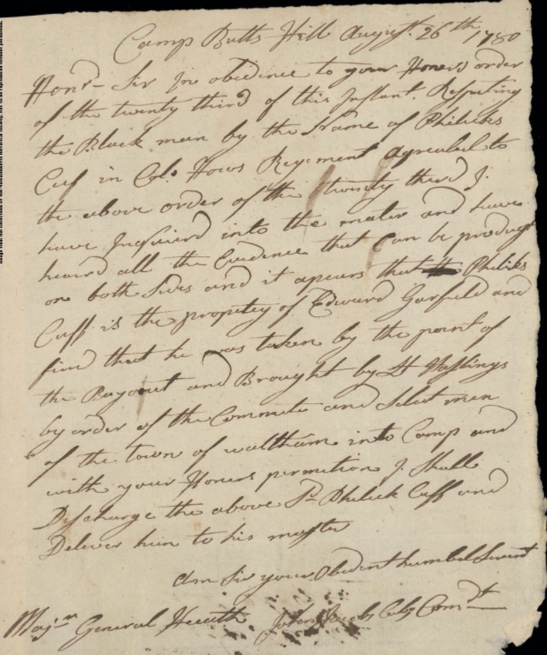 Camp Butts Hill August. 26th 1780
Honr- Sir In obedience to your Honors order
of the twenty third of this Instant. Respecting
the Black man by the Name of Philicks
Cuff in Colo Hows Regiment agreabel to
the above order of the twenty third I
have Inquired into the matter and have
heard all the Evidence that Can be produgt
on both Sides and it apears that Philicks
Cuff is the propitey of Edward Garfield and
find that he was taken by the point of
the Bayonet and Brought by Lt Hastings
by order of the Commete and Select men
of the town of waltham into Camp and
with your Honers permotion I Shall
Discharge the above Sd Philick Cuff and
Deliver him to his master
Am Sir your Obedent humbel Servent
John Jacobs Colo Comdt
Majr General Heeath